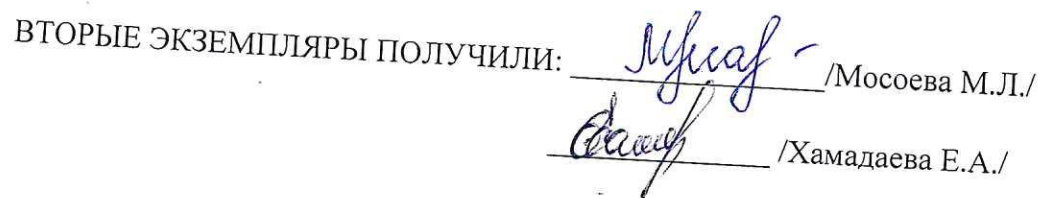 ВТОРЫЕ ЭКЗЕМПЛЯРЫ ПОЛУЧИЛИ: /Мосоева М.Л./
/Хамадаева Е.А./